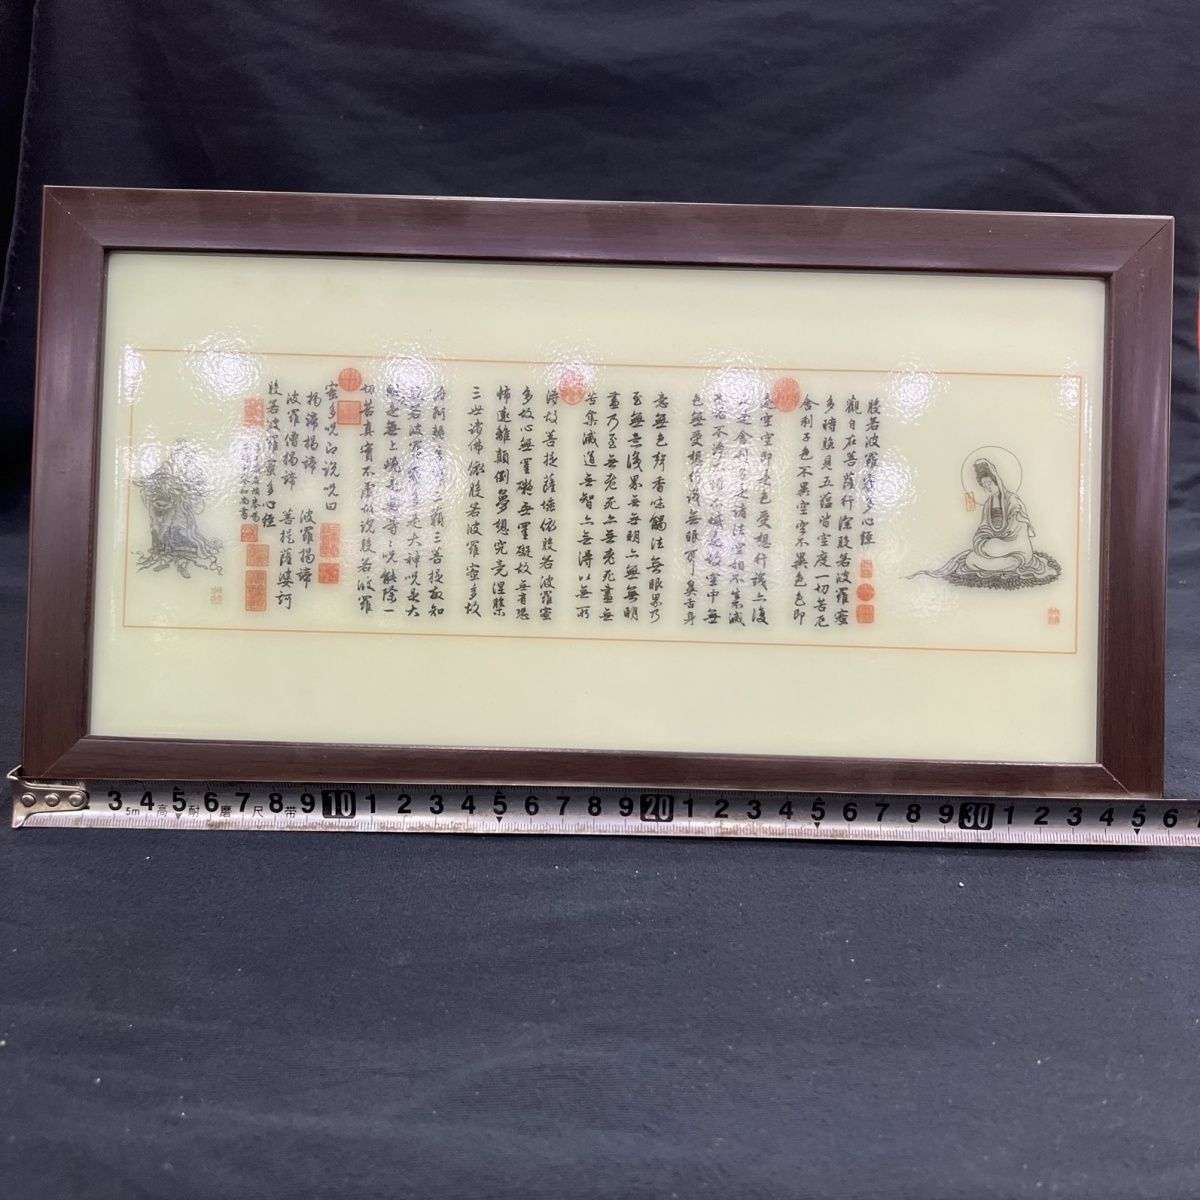 般若波羅蜜多心經
觀自在菩薩行深般若波羅蜜
多時照見五蘊皆空度一切苦厄
舍利子色不異空空不異色色即
是空空即是色受想行識亦復
是舍利子是諸法空相不生滅
不垢不淨不增不減是故空中無
色無受想行識無眼耳鼻舌身
意無色聲香味觸法無眼界乃
至無意識界無無明亦無無明
盡乃至無老死亦無老死盡無
苦集滅道無智亦無得以無所
得故菩提薩埵依般若波羅蜜
多故心無罣礙無罣礙故無有恐
怖遠離顛倒夢想究竟涅槃
三世諸佛依般若波羅蜜多故
得阿耨多羅三藐三菩提故知
般若波羅蜜多是大神咒是大
明咒是無上咒是無等等咒能除一
切苦真實不虛故說般若波羅
蜜多咒即說咒曰
揭諦揭諦 波羅揭諦
波羅僧揭諦 菩提薩婆訶
般若波羅蜜多心經
3 4 5 6 7 8 9 10 1 2 3 4 5 6 7 8 9 20 1 2 3 4 5 6 7 8 9 30 1 2 3 4 5 6
5m 高耐磨尺带